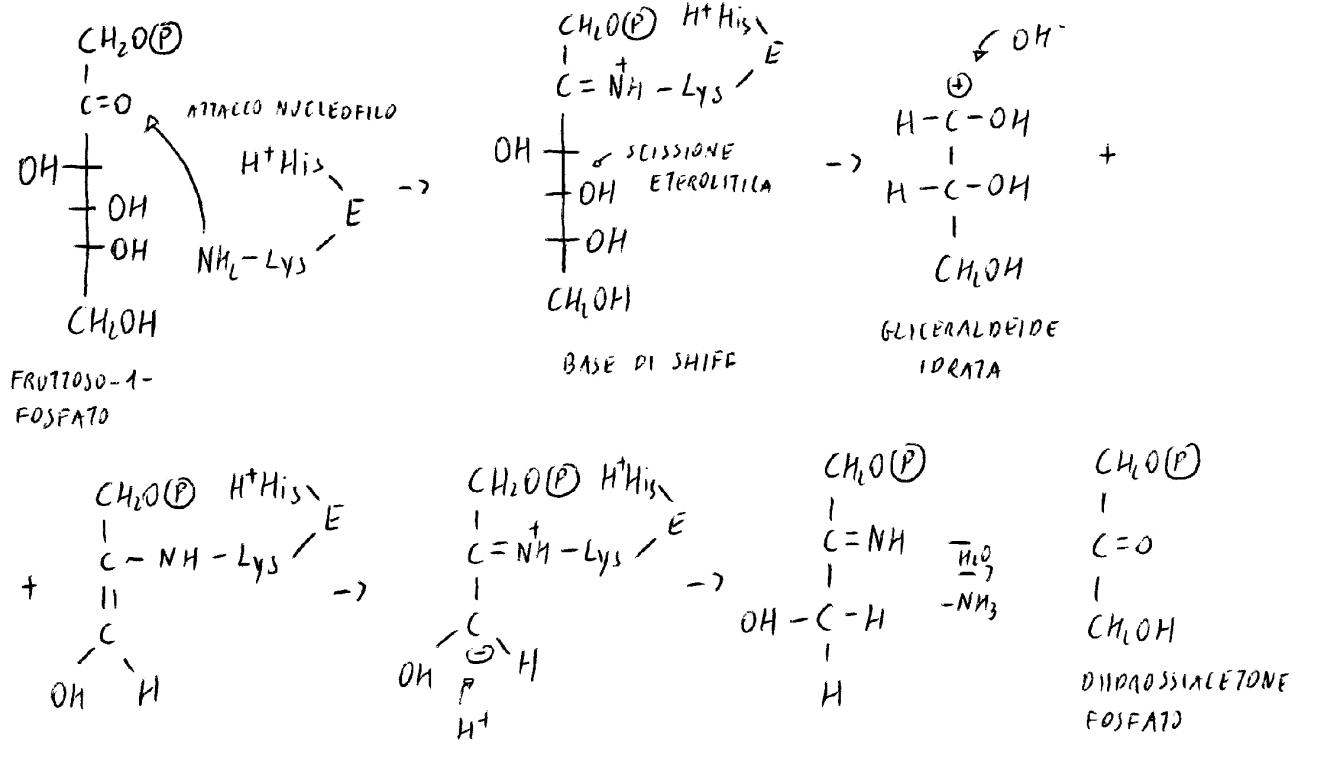 CH₂OⓅ
C=O
ATTACCO NUCLEOFILO
OH
H⁺His
OH
E
OH
NH₂-Lys
CH₂OH
FRUTTOSO-1-
FOSFATO
->
CH₂OⓅ H⁺His
E
C=N⁺H-Lys
OH
SCISSIONE
ETEROLITICA
OH
OH
CH₂OH
BASE DI SHIFF
->
OH⁻
⊕
H-C-OH
H-C-OH
CH₂OH
GLICERALDEIDE
IDRATA
+
+
CH₂OⓅ H⁺His
E
C-NH-Lys
C
OH H
->
CH₂OⓅ H⁺His
E
C=N⁺H-Lys
C
⊖
OH H
H⁺
->
CH₂OⓅ
C=NH
OH-C-H
H
H₂O
->
-NH₃
CH₂OⓅ
C=O
CH₂OH
DIIDROSSIACETONE
FOSFATO